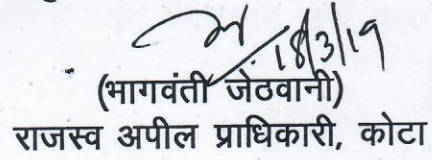 18/3/19
(भागवंती जेठवानी)
राजस्व अपील प्राधिकारी, कोटा